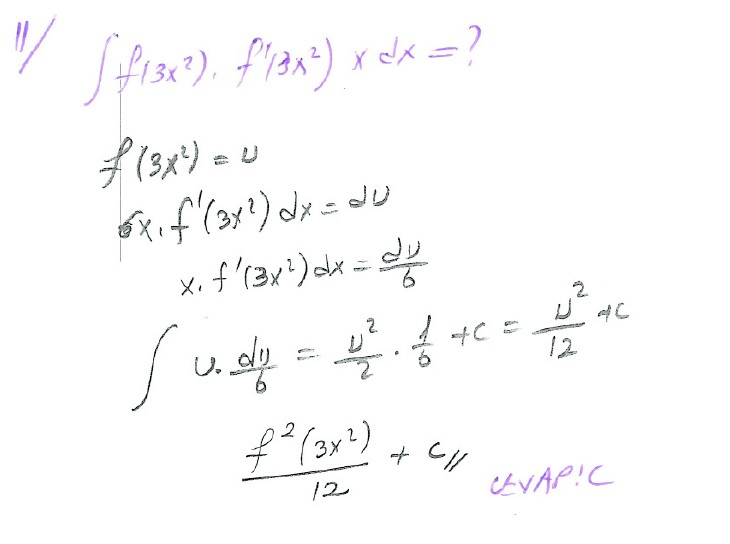 11/ ∫ f(3x²). f'(3x²) x dx = ?
f(3x²) = u
6x. f'(3x²) dx = du
x. f'(3x²) dx = du/6
∫ u. du/6 = u²/2 . 1/6 + c = u²/12 + c
f²(3x²)/12 + c //
CEVAP: C